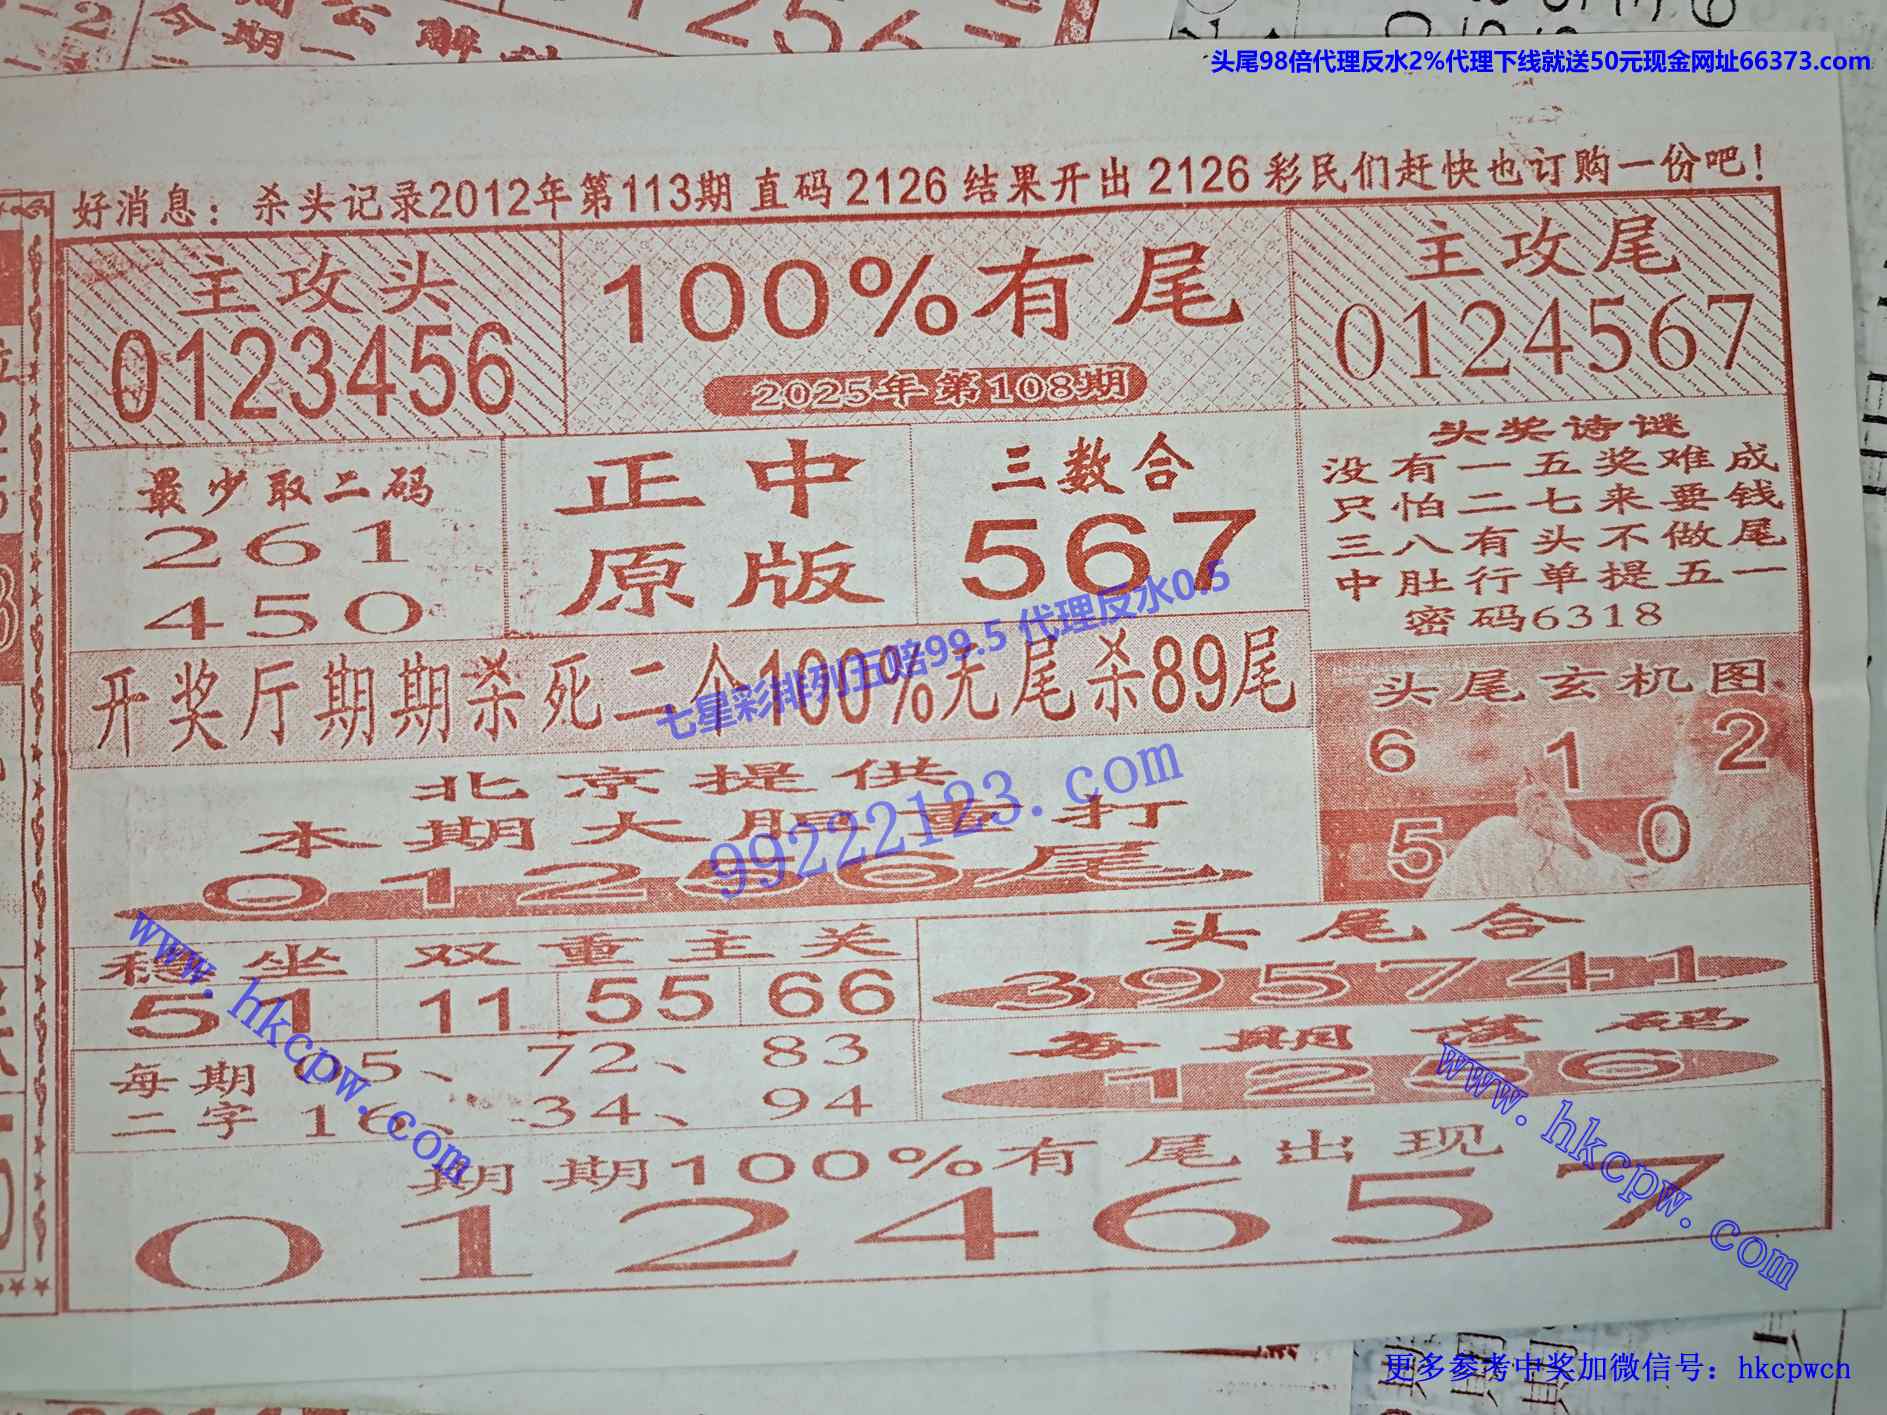 头尾98倍代理反水2%代理下线就送50元现金网址66373.com
好消息：杀头记录2012年第113期 直码 2126 结果开出 2126 彩民们赶快也订购一份吧！
主攻头
0123456
100%有尾
2025年第108期
主攻尾
0124567
最少取二码
261
450
正中
原版
三数合
567
头奖诗谜
没有一五奖难成
只怕二七来要钱
三八有头不做尾
中肚行单提五一
密码6318
开奖厅期期杀死二个100%无尾杀89尾
七星彩排列五赔99.5 代理反水0.5
头尾玄机图
6 1 2
5 0
北京提供
本期大胆重打
01256尾
99222123.com
稳坐
51
双重主关
11 55 66
头尾合
395741
每期
二字
05、72、83
16、34、94
每期落码
1256
www.hkcpw.com
www.hkcpw.com
期期100%有尾出现
0124657
更多参考中奖加微信号：hkcpwcn